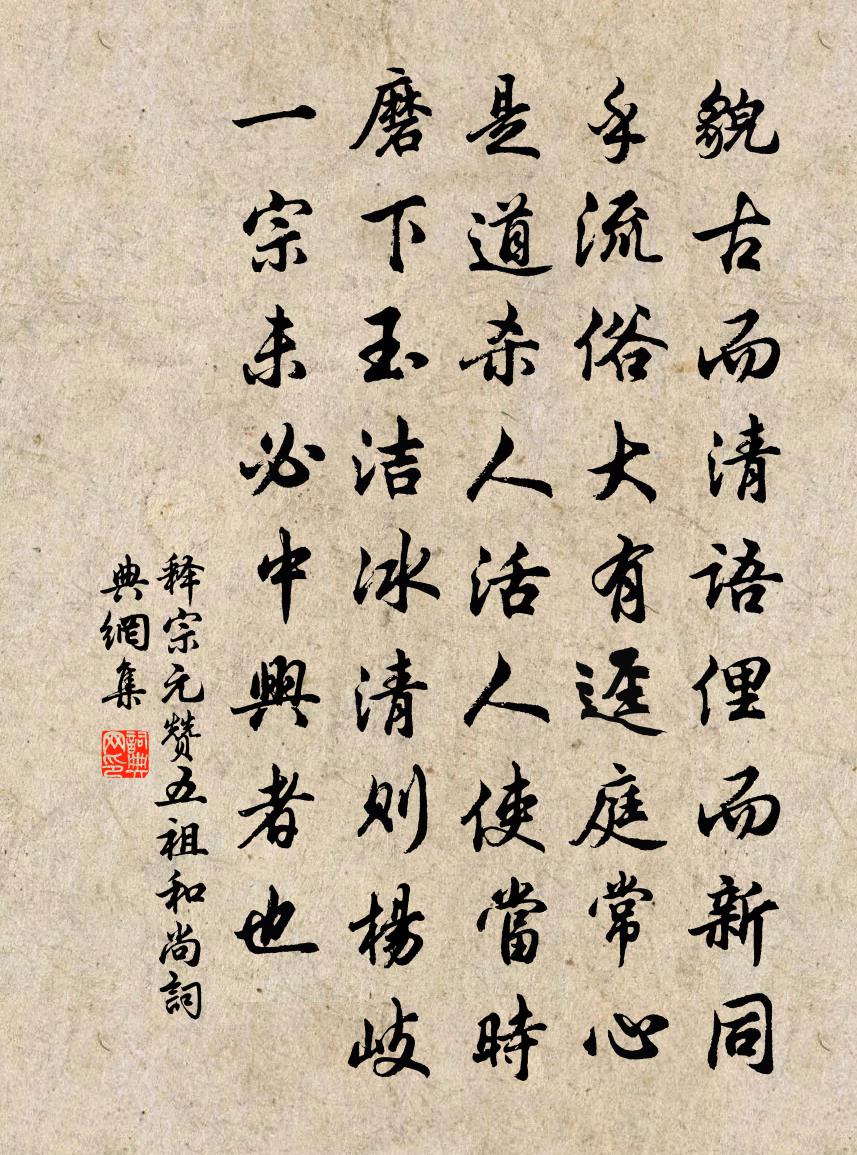 貌古而清語俚而新同
乎流俗大有逕庭常心
是道杀人活人使當時
磨下玉洁冰清则楊岐
一宗未必中興者也
释宗元赞五祖和尚詞
典網集
詞典
网印